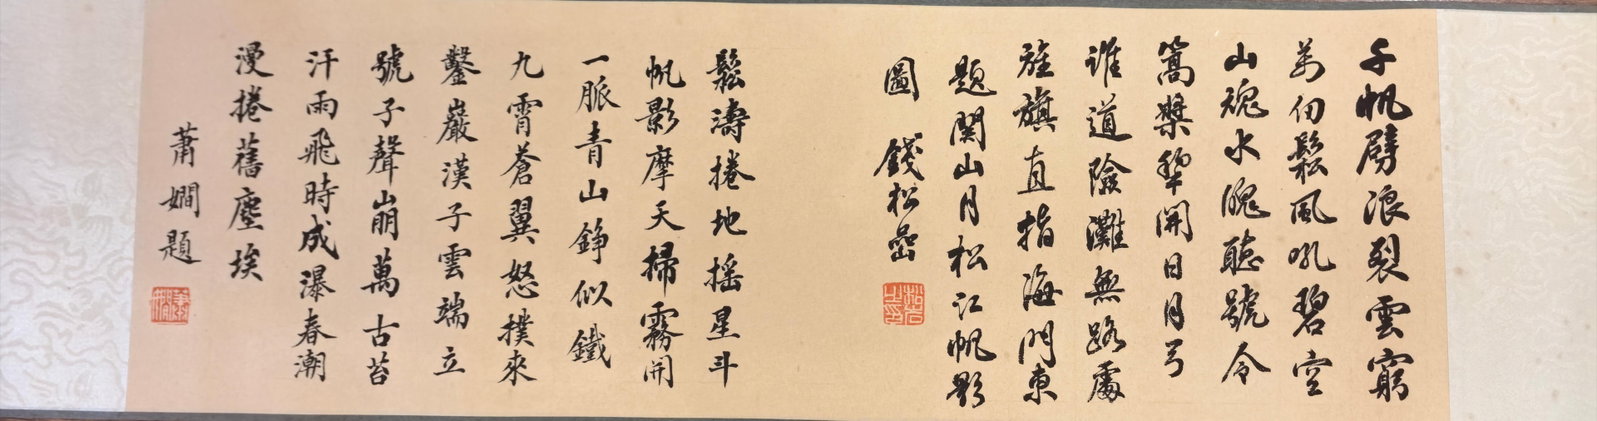 千帆劈浪裂雲窮
萬仞鬆風吼碧空
山魂水魄聽號令
篙槳犂開日月弓
誰道險灘無路處
旌旗直指海門東
題関山月松江帆影
圖 錢松嵒
鬆濤捲地摇星斗
帆影摩天掃霧開
一脈青山錚似鐵
九霄蒼翼怒撲來
鑿巖漢子雲端立
號子聲崩萬古苔
汗雨飛時成瀑春潮
漫捲舊塵埃
蕭嫺題